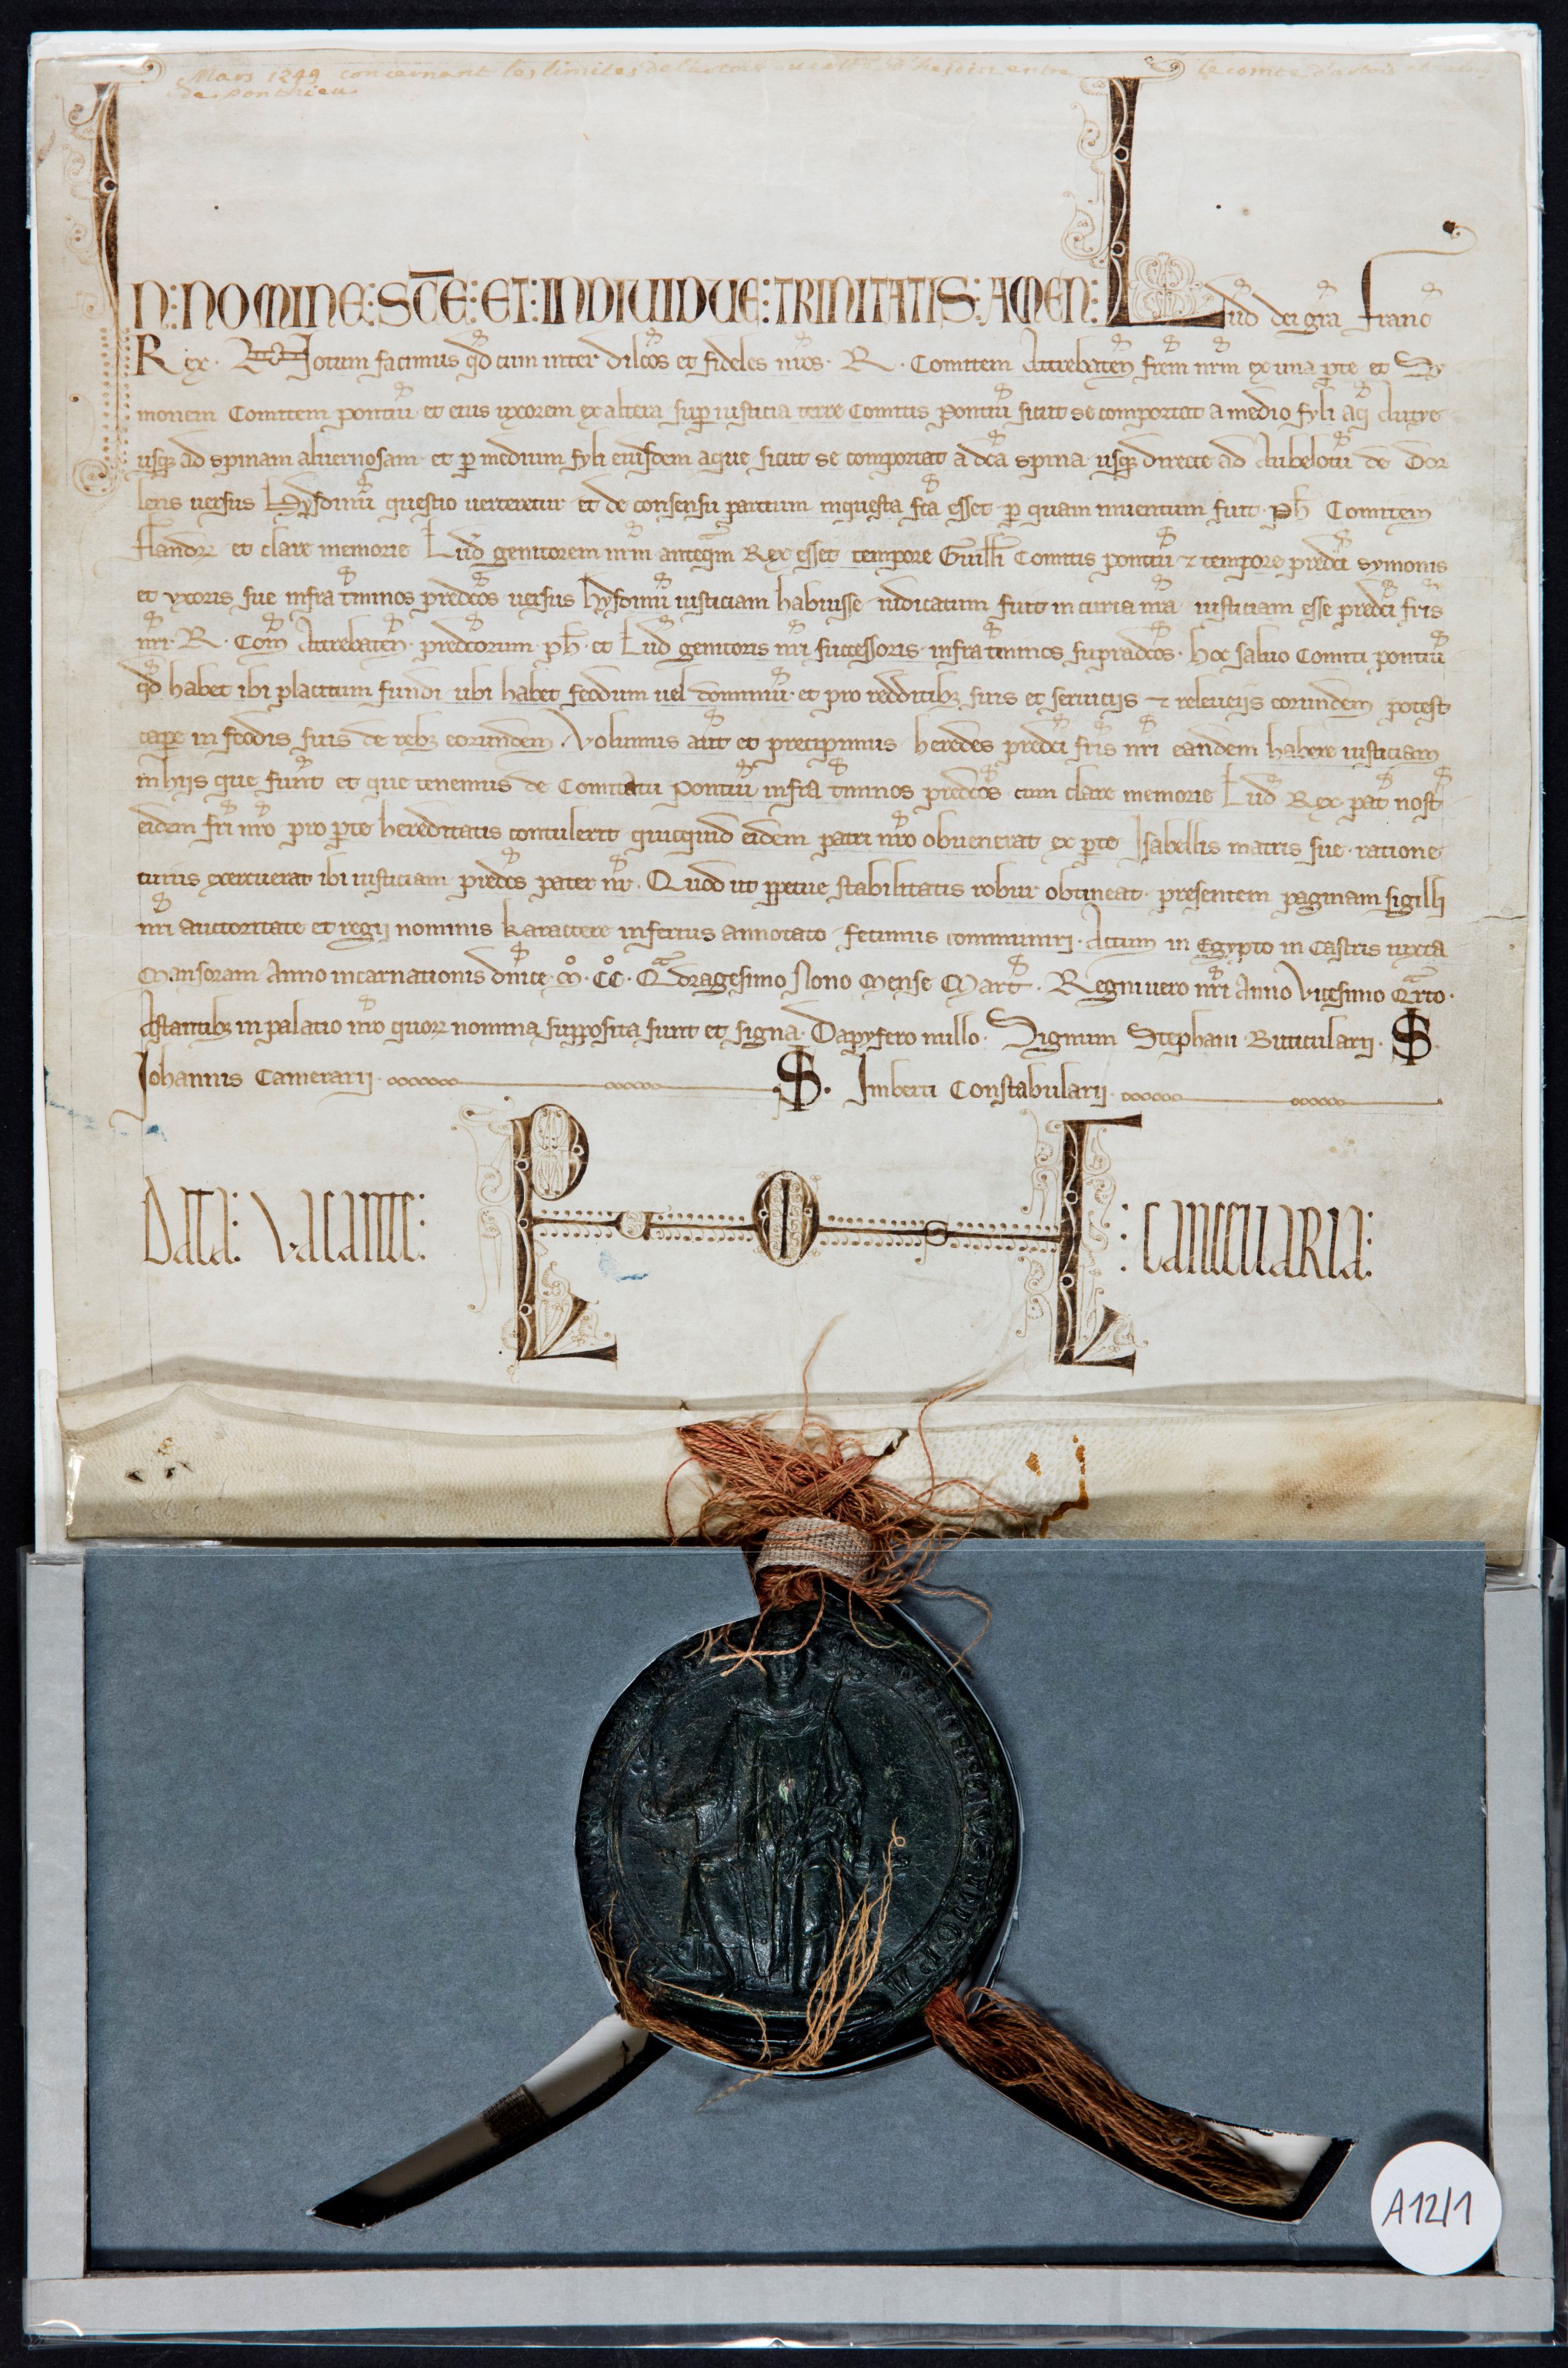 Mars 1249 concernant les limites de l'artois entre le comte d'artois
de ponthieu
IN: NOMINE: SC̄E: ET: INDIUIDUE: TRINITATIS: AMEN: Lud̄ dei gr̄a Franc̄
Rex. Notum facimus qd̄ cum inter dilc̄os et fideles nr̄os. R. Comitem Attrebaten̄ fr̄em nr̄m ex una ꝑte et Sy
monem Comitem pontiuī et eius uxorem ex altera suꝑ iusticia terre Comitis Pontiuī sicut se comportat a medio fyli aq̄ Autye
usqꝫ ad spinam aluernosam et ꝑ medium fyli eiusdem aque sicut se comportat a dc̄a spina usqꝫ directe ad Aubelotū de Dor
lens uersus Hysdinū questio uerteretur et de consensu partium inquesta fc̄a esset ꝑ quam inuentum fuit. ph̄ Comitem
Flandrꝝ et clare memorie Lud̄ genitorem nr̄m anteq̄m Rex esset tempore Guill̄i Comitis pontiuī ⁊ tempore predc̄i symonis
et uxoris sue infra t̄minos predc̄os uersus hysdinū iusticiam habuisse iudicatum fuit in curia nr̄a iusticiam esse predc̄i fr̄is
nr̄i. R. Com̄ Attrebaten̄. predc̄orum. ph̄. et Lud̄ genitoris nr̄i successoris. infra t̄minos supradc̄os. hoc saluo Comiti pontiuī
qd̄ habet ibi placitum fundi ubi habet feodum uel dominiū. et pro redditibꝫ suis et seruiciis ⁊ releueiis eorundem potest
caꝑe in feodis suis de rebꝫ eorundem. Volumus aut̄ et precipimus heredes predc̄i fr̄is nr̄i eandem habere iusticiam
in hiis que sunt et que tenemus de Comitatu Pontiuī infra t̄minos predc̄os cum clare memorie Lud̄ Rex. pat̄ nost̄
eidem fr̄i nr̄o pro ꝑte hereditatis contulerit quicquid eidem patri nr̄o obuenerat ex ꝑte Isabellis matris sue. ratione
cuius exercuerat ibi iusticiam predc̄s pater nr̄. Quod ut ꝑpetue stabilitatis robur obtineat. presentem paginam sigilli
nr̄i auctoritate et regii nominis karactere inferius annotato fecimus communiri. Actum in Egypto in Castris iuxta
Mansoram Anno incarnationis dn̄ice. M̊. CC̊. Qᵃdragesimo Nono Mense Mart̄. Regni uero nr̄i Anno Vicesimo Qᵃrto.
Astantibꝫ in palatio nr̄o quorꝝ nomina supposita sunt et signa. Dapyfero nullo. Signum Stephani Buticularii. S.
Iohannis Camerarii. S. Imberti Constabularii.
DATA: VACANTE: CANCELLARIA:
A12/1